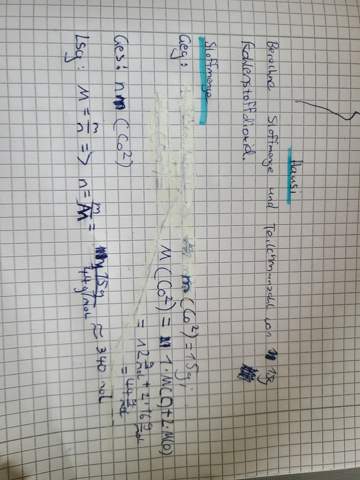 Hausi
Berechne Stoffmenge und Teilchenanzahl von 15g
Kohlenstoffdioxid.
Stoffmenge
Geg: m (Co²) = 15g;
M (Co²) = 1·M(C)+2·M(O)
= 12 g/mol + 2·16 g/mol
= 44 g/mol
Ges: n (Co²)
Lsg: M = m/n => n = m/M = 15g / 44 g/mol ≈ 340 mol